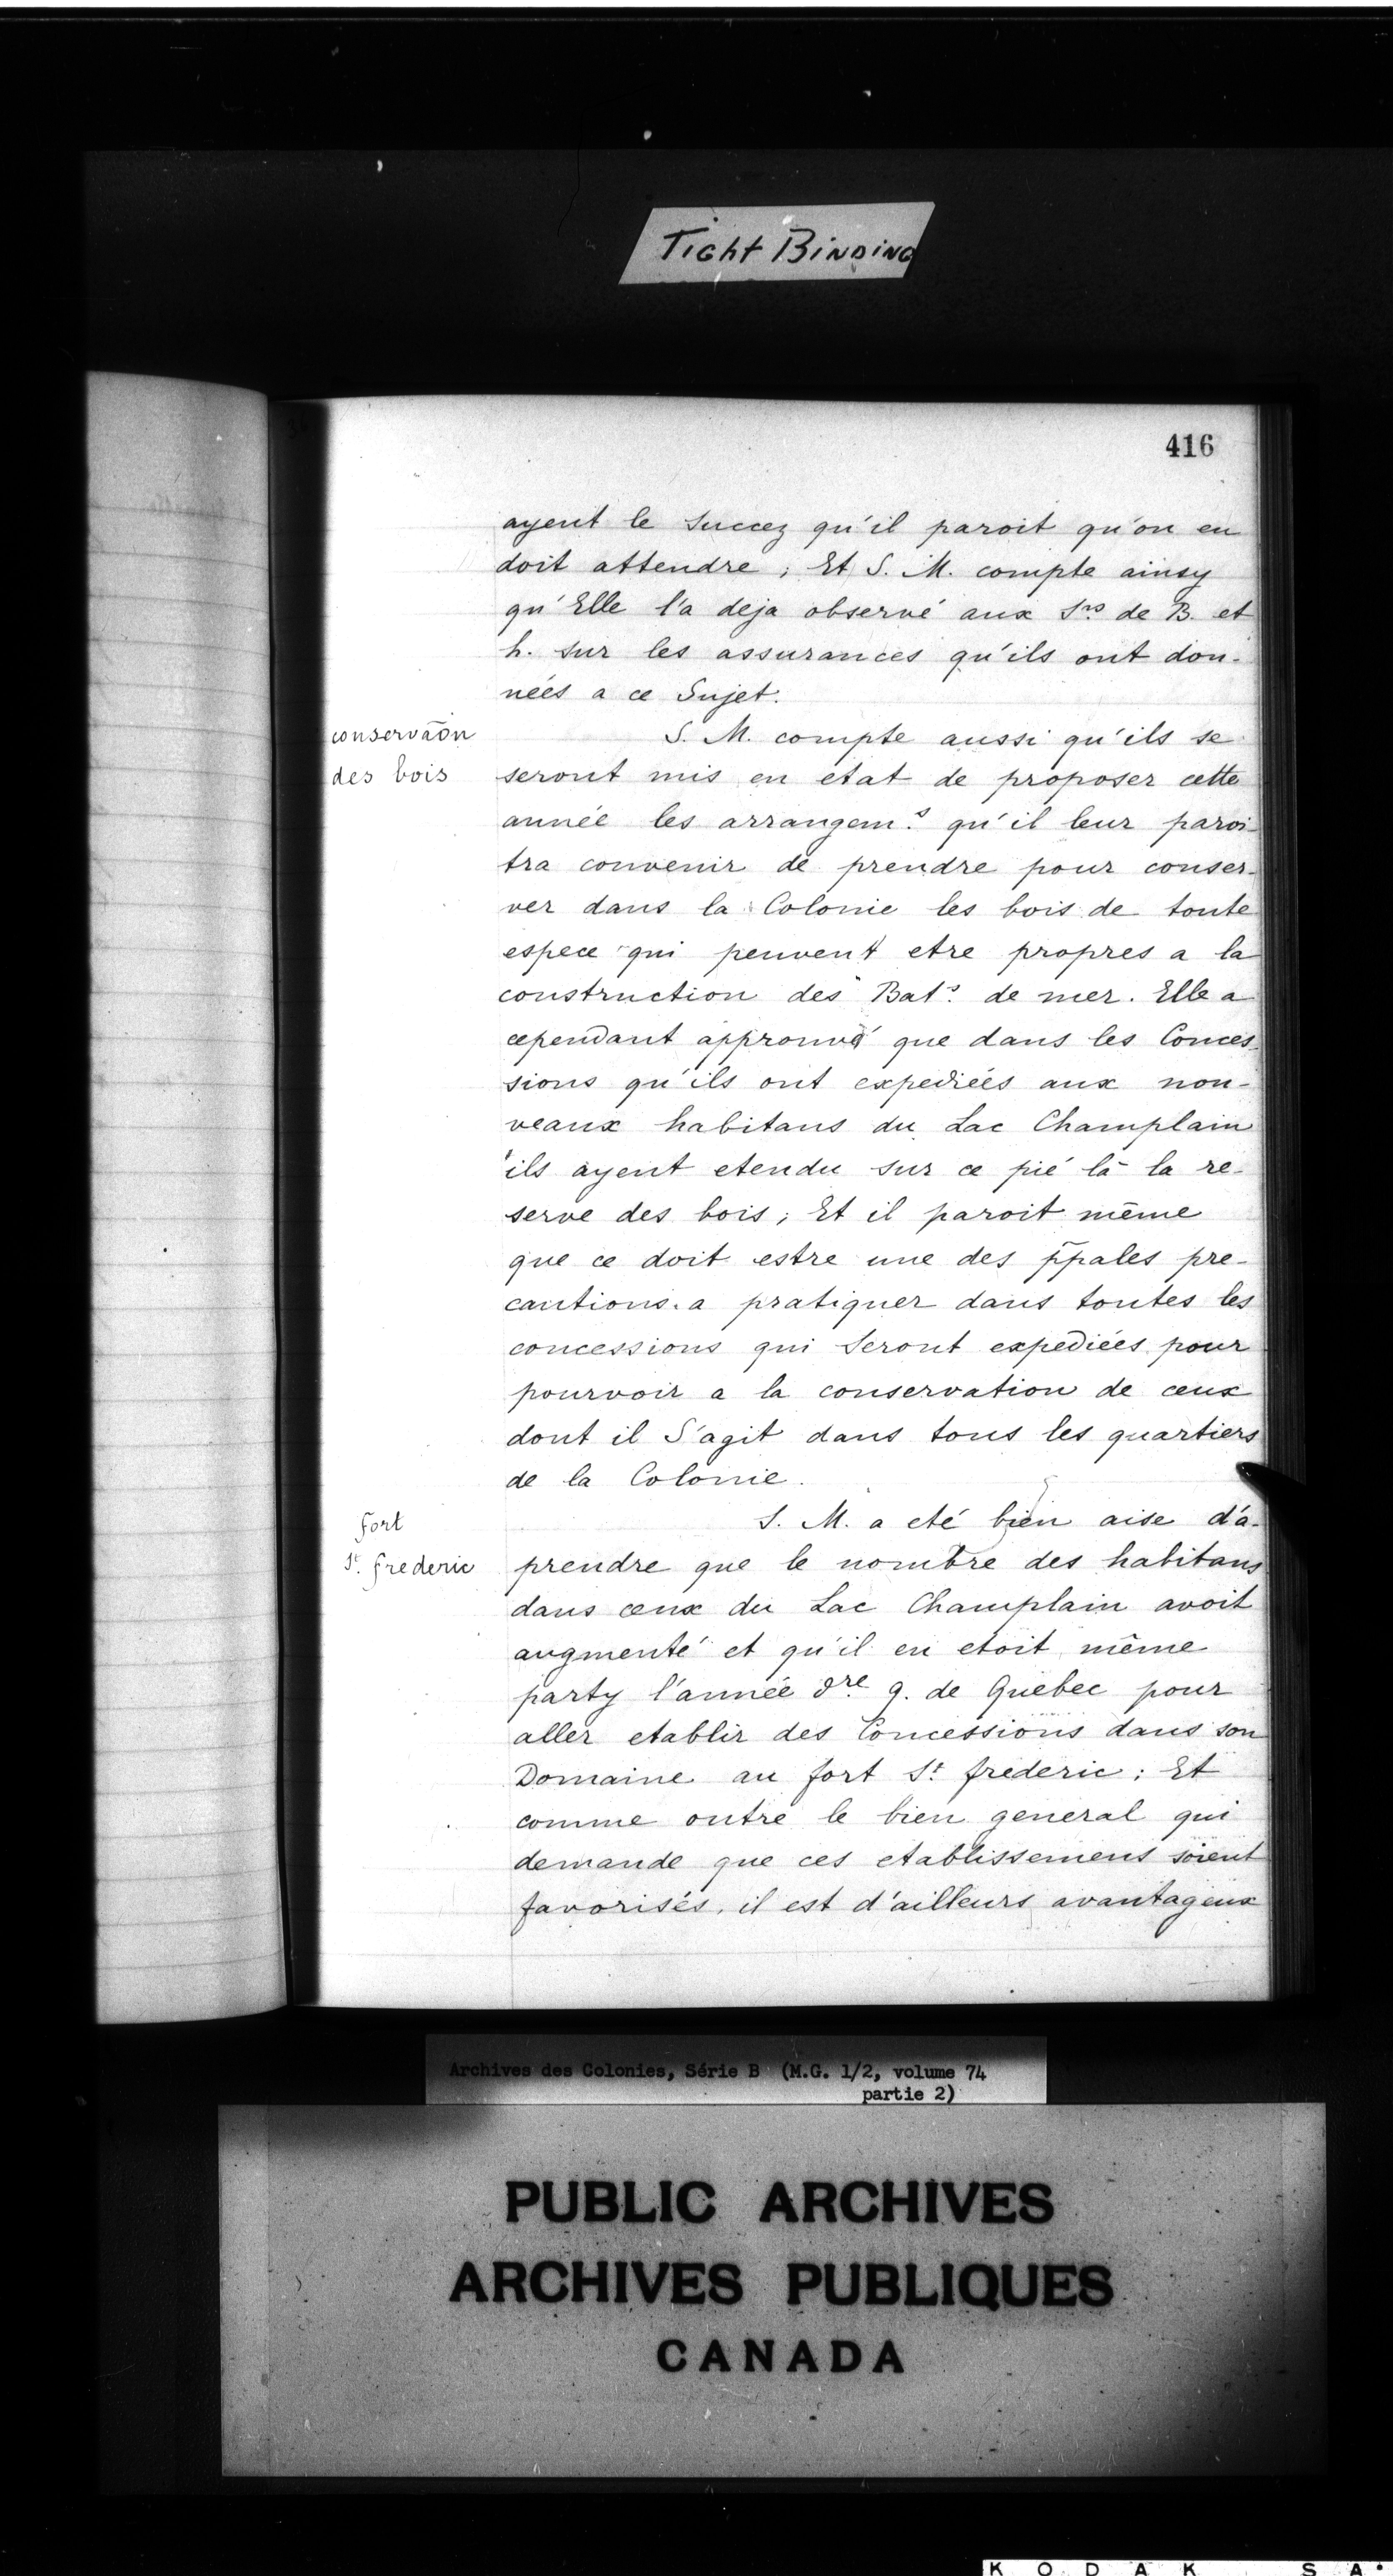 Tight Binding
416
ayent le succez qu'il paroit qu'on en
doit attendre ; Et S. M. compte ainsy
qu'Elle l'a deja observé aux Srs de B. et
h. sur les assurances qu'ils ont don-
nées a ce Sujet.
conservaōn
des bois
S. M. compte aussi qu'ils se
seront mis en etat de proposer cette
année les arrangem.s qu'il leur paroi-
tra convenir de prendre pour conser-
ver dans la Colonie les bois de toute
espece qui peuvent etre propres a la
construction des Bat.s de mer. Elle a
cependant approuvé que dans les Conces-
sions qu'ils ont expediées aux nou-
veaux habitans du Lac Champlain
ils ayent etendu sur ce pié là la re-
serve des bois ; Et il paroit même
que ce doit estre une des p̄pales pre-
cautions a pratiquer dans toutes les
concessions qui seront expediées pour
pourvoir a la conservation de ceux
dont il S'agit dans tous les quartiers
de la Colonie.
fort
St. frederic
S. M. a eté bien aise d'a-
prendre que le nombre des habitans
dans ceux du Lac Champlain avoit
augmenté et qu'il en etoit même
party l'année dre. 9. de Quebec pour
aller etablir des Concessions dans son
Domaine au fort St. frederic : Et
comme outre le bien general qui
demande que ces etablissemens soient
favorisés, il est d'ailleurs avantageux
Archives des Colonies, Série B (M.G. 1/2, volume 74
partie 2)
PUBLIC ARCHIVES
ARCHIVES PUBLIQUES
CANADA
KODAK SA